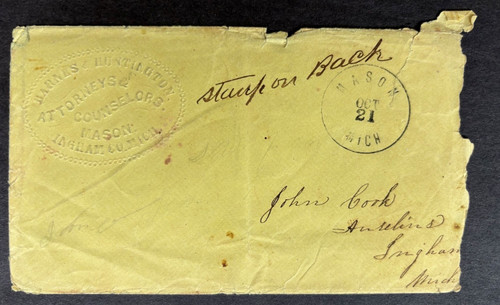 BARNES & HUNTINGTON
ATTORNEYS &
COUNSELORS.
MASON
INGHAM CO. MICH.
stamp on Back
MASON
OCT
21
MICH
John Cook
Aurelius
Ingham
Mich
John C